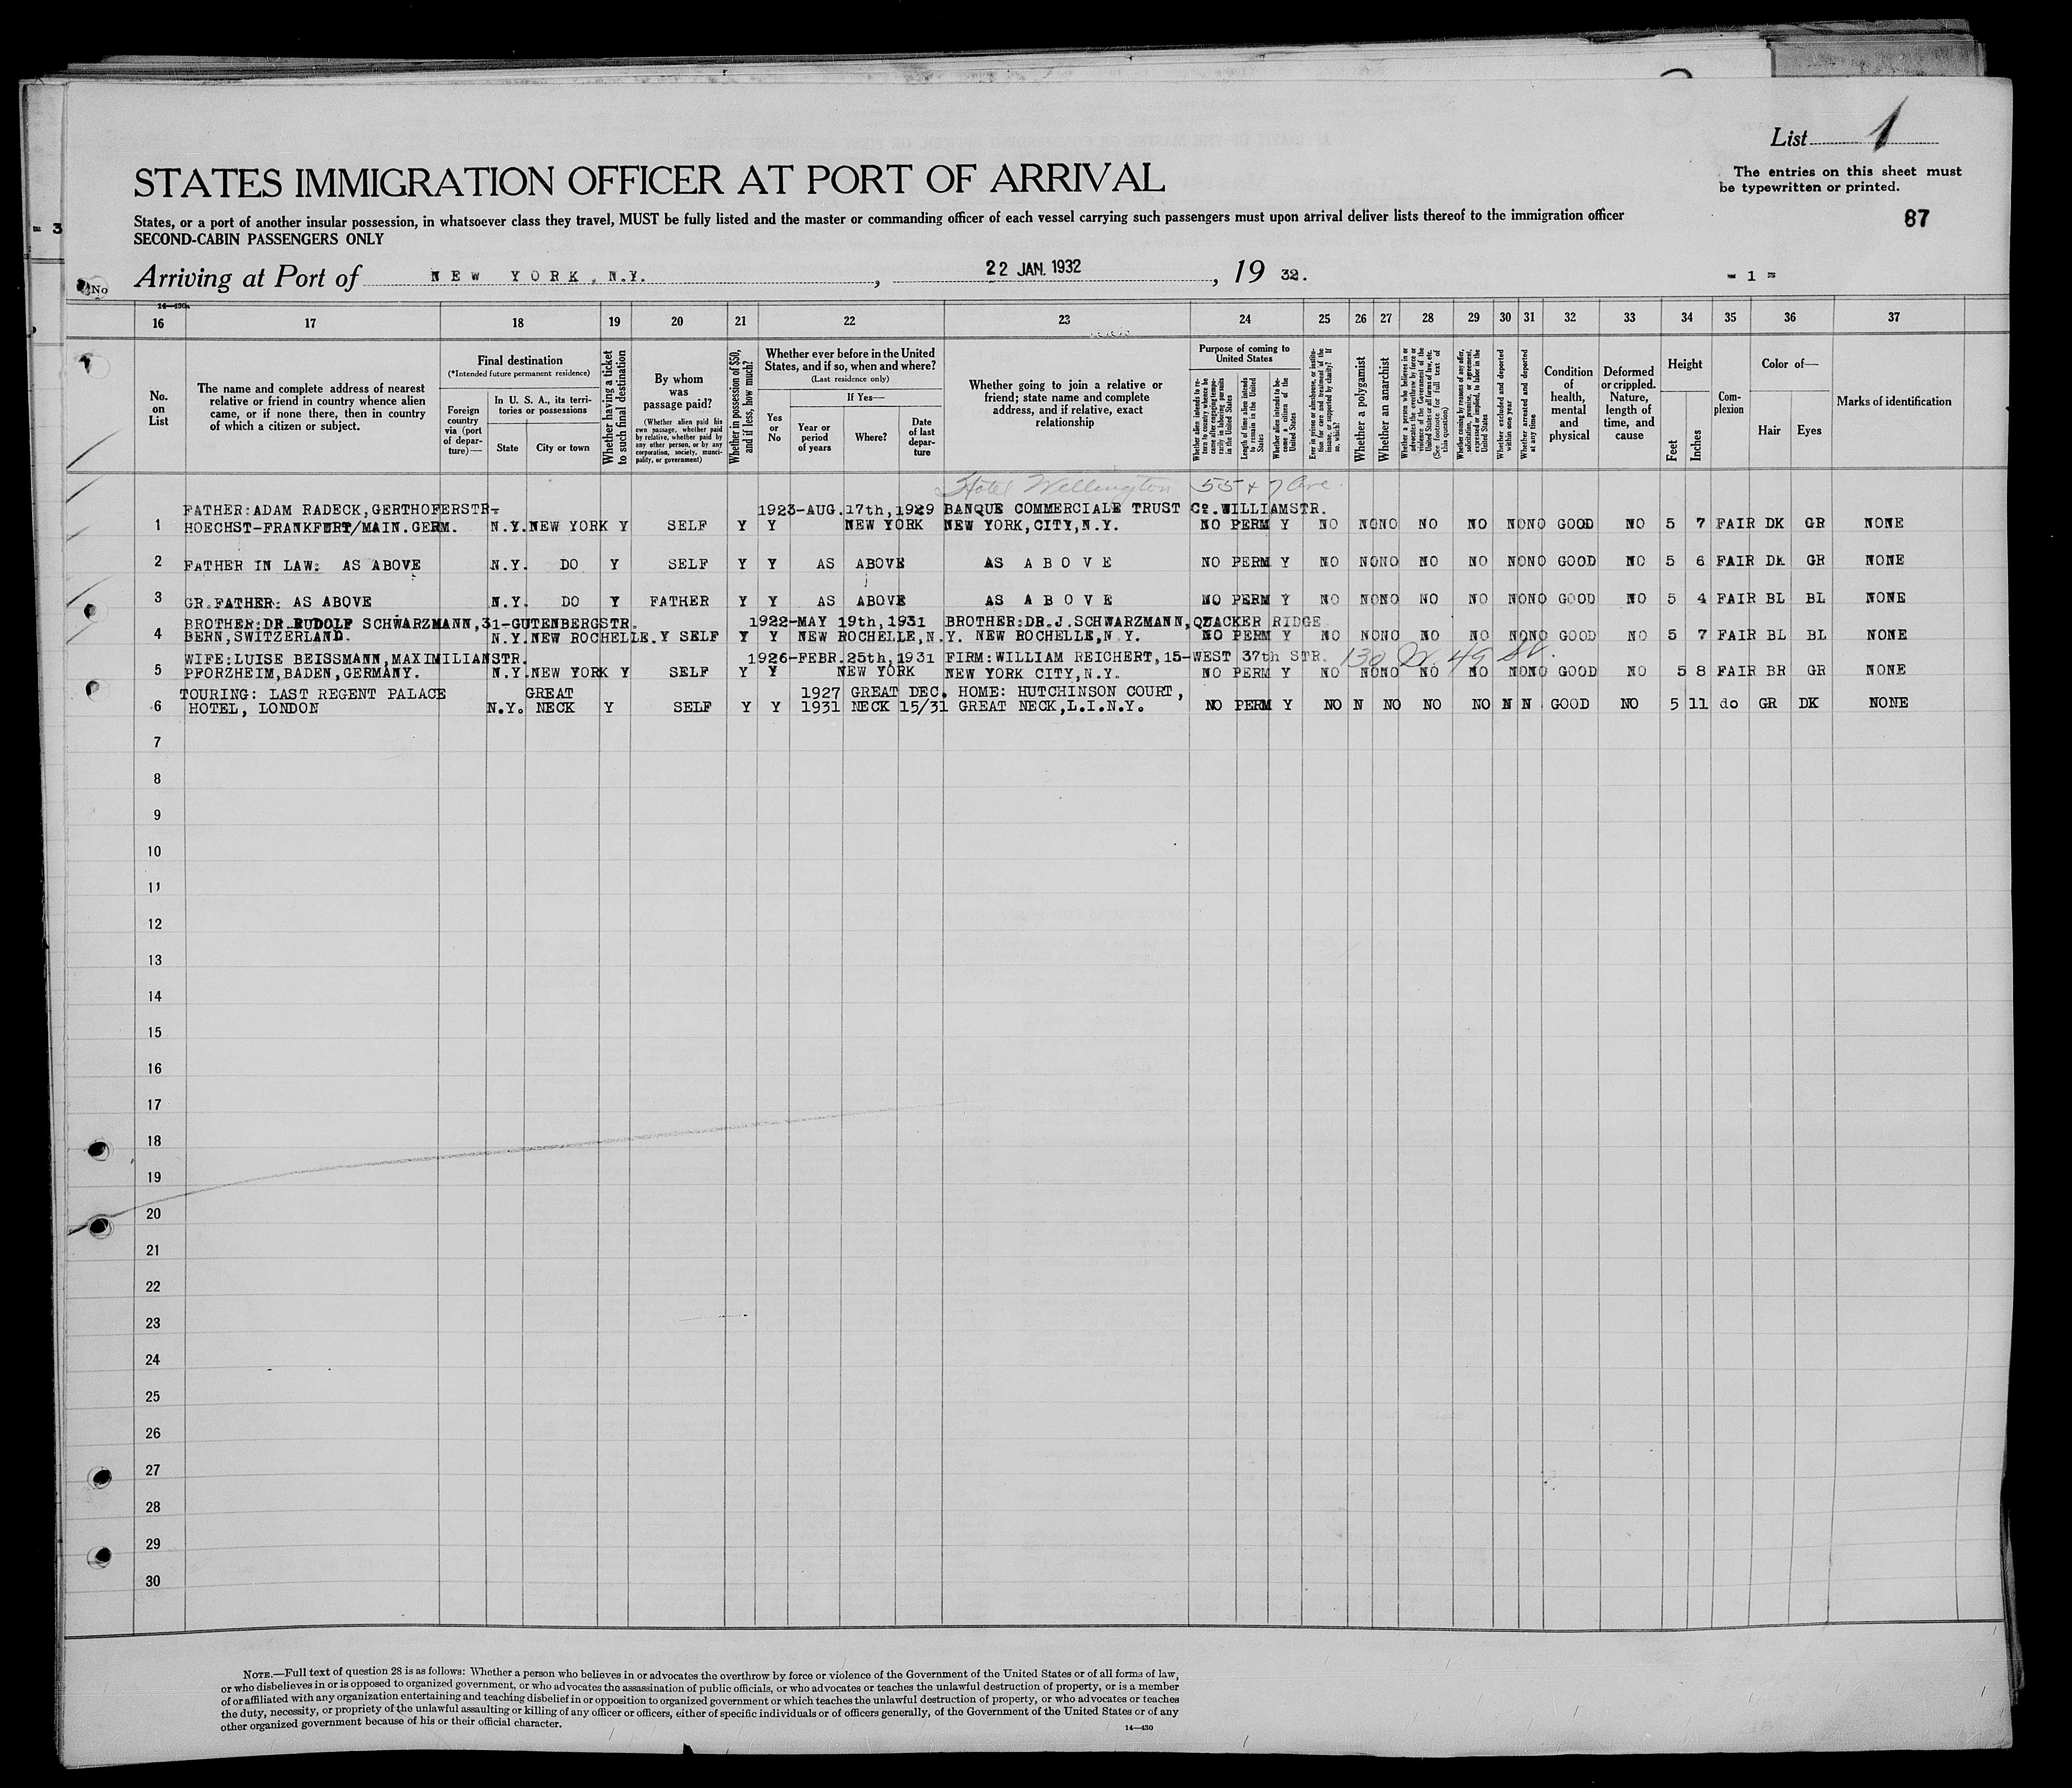 List 1
STATES IMMIGRATION OFFICER AT PORT OF ARRIVAL
The entries on this sheet must
be typewritten or printed.
States, or a port of another insular possession, in whatsoever class they travel, MUST be fully listed and the master or commanding officer of each vessel carrying such passengers must upon arrival deliver lists thereof to the immigration officer
87
SECOND-CABIN PASSENGERS ONLY
= 3
Arriving at Port of NEW YORK, N.Y. , 22 JAN. 1932 , 19 32.
- 1 =
No
14—430a
16 17 18 19 20 21 22 23 24 25 26 27 28 29 30 31 32 33 34 35 36 37
No. on List
The name and complete address of nearest relative or friend in country whence alien came, or if none there, then in country of which a citizen or subject.
Final destination
(*Intended future permanent residence)
Foreign country via (port of departure)—
In U. S. A., its territories or possessions
State
City or town
Whether having a ticket to such final destination
By whom was passage paid?
(Whether alien paid his own passage, whether paid by relative, whether paid by any other person, or by any corporation, society, municipality, or government)
Whether in possession of $50, and if less, how much?
Whether ever before in the United States, and if so, when and where?
(Last residence only)
Yes or No
If Yes—
Year or period of years
Where?
Date of last departure
Whether going to join a relative or friend; state name and complete address, and if relative, exact relationship
Purpose of coming to United States
Whether alien intends to return to country whence he came after engaging temporarily in laboring pursuits in the United States
Length of time alien intends to remain in the United States
Whether alien intends to become a citizen of the United States
Ever in prison or almshouse, or institution for care and treatment of the insane, or supported by charity? If so, which?
Whether a polygamist
Whether an anarchist
Whether a person who believes in or advocates the overthrow by force or violence of the Government of the United States or all forms of law, etc. (See footnote for full text of this question)
Whether coming by reason of any offer, solicitation, promise, or agreement, expressed or implied, to labor in the United States
Whether excluded and deported within one year
Whether arrested and deported at any time
Condition of health, mental and physical
Deformed or crippled. Nature, length of time, and cause
Height
Feet
Inches
Complexion
Color of—
Hair
Eyes
Marks of identification
Hotel Wellington 55 + 7 Ave.
FATHER:ADAM RADECK,GERTHOFERSTR- 1923-AUG.17th,1929 BANQUE COMMERCIALE TRUST Co.WILLIAMSTR.
1 HOECHST-FRANKFURT/MAIN.GERM. N.Y. NEW YORK Y SELF Y Y NEW YORK NEW YORK,CITY,N.Y. NO PERM Y NO NO NO NO NO NO NO GOOD NO 5 7 FAIR DK GR NONE
2 FATHER IN LAW: AS ABOVE N.Y. DO Y SELF Y Y AS ABOVE AS ABOVE NO PERM Y NO NO NO NO NO NO NO GOOD NO 5 6 FAIR DK GR NONE
3 GR.FATHER: AS ABOVE N.Y. DO Y FATHER Y Y AS ABOVE AS ABOVE NO PERM Y NO NO NO NO NO NO NO GOOD NO 5 4 FAIR BL BL NONE
BROTHER:DR.RUDOLF SCHWARZMANN,31-GUTENBERGSTR. 1922-MAY 19th,1931 BROTHER:DR.J.SCHWARZMANN,QUACKER RIDGE
4 BERN,SWITZERLAND. N.Y. NEW ROCHELLE. Y SELF Y Y NEW ROCHELLE,N.Y. NEW ROCHELLE,N.Y. NO PERM Y NO NO NO NO NO NO NO GOOD NO 5 7 FAIR BL BL NONE
WIFE:LUISE BEISSMANN,MAXIMILIANSTR. 1926-FEBR.25th,1931 FIRM:WILLIAM REICHERT,15-WEST 37th STR. 130 W. 49 St.
5 PFORZHEIM,BADEN,GERMANY. N.Y. NEW YORK Y SELF Y Y NEW YORK NEW YORK CITY,N.Y. NO PERM Y NO NO NO NO NO NO NO GOOD NO 5 8 FAIR BR GR NONE
TOURING: LAST REGENT PALACE GREAT 1927 GREAT DEC. HOME: HUTCHINSON COURT,
6 HOTEL, LONDON N.Y. NECK Y SELF Y Y 1931 NECK 15/31 GREAT NECK,L.I.N.Y. NO PERM Y NO N NO NO NO N N GOOD NO 5 11 do GR DK NONE
7
8
9
10
11
12
13
14
15
16
17
18
19
20
21
22
23
24
25
26
27
28
29
30
NOTE.—Full text of question 28 is as follows: Whether a person who believes in or advocates the overthrow by force or violence of the Government of the United States or of all forms of law,
or who disbelieves in or is opposed to organized government, or who advocates the assassination of public officials, or who advocates or teaches the unlawful destruction of property, or is a member
of or affiliated with any organization entertaining and teaching disbelief in or opposition to organized government or which teaches the unlawful destruction of property, or who advocates or teaches
the duty, necessity, or propriety of the unlawful assaulting or killing of any officer or officers, either of specific individuals or of officers generally, of the Government of the United States or of any
other organized government because of his or their official character.
14—430